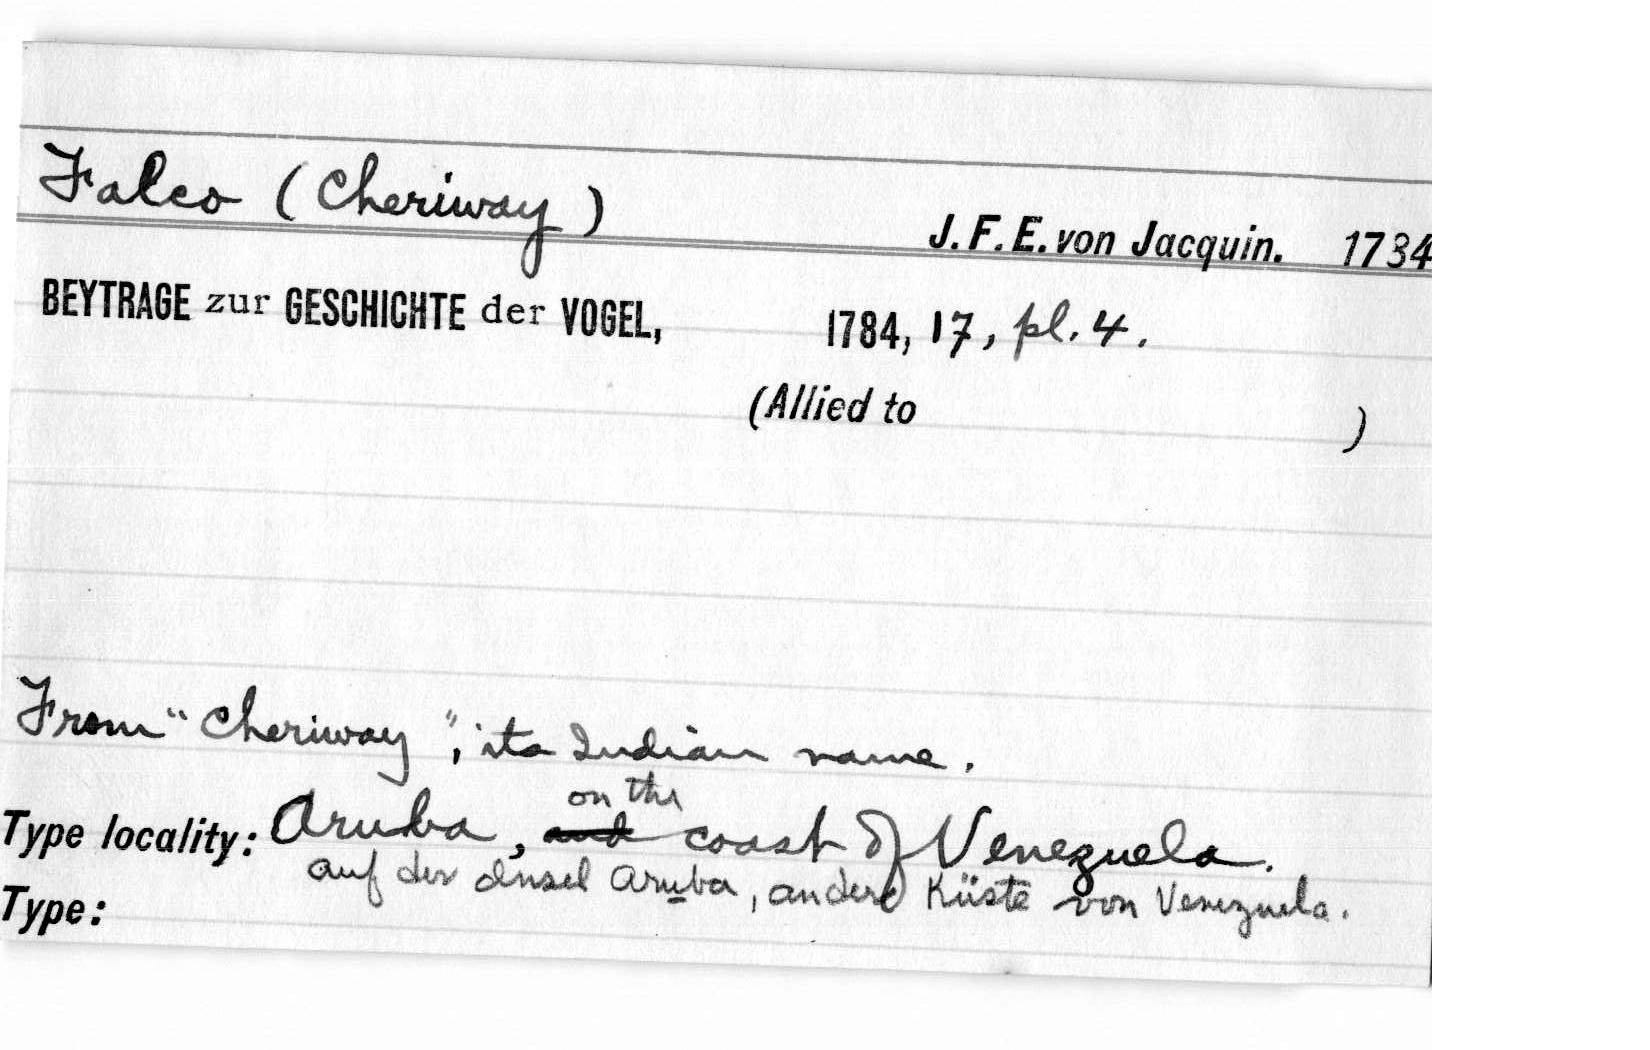 Falco (Cheriway)
J. F. E. von Jacquin. 1784
BEYTRAGE zur GESCHICHTE der VOGEL, 1784, 17, pl. 4.
(Allied to )
From "Cheriway", its Indian name.
on the
Type locality: Aruba, and coast of Venezuela.
auf der Insel Aruba, an der Küste von Venezuela.
Type: